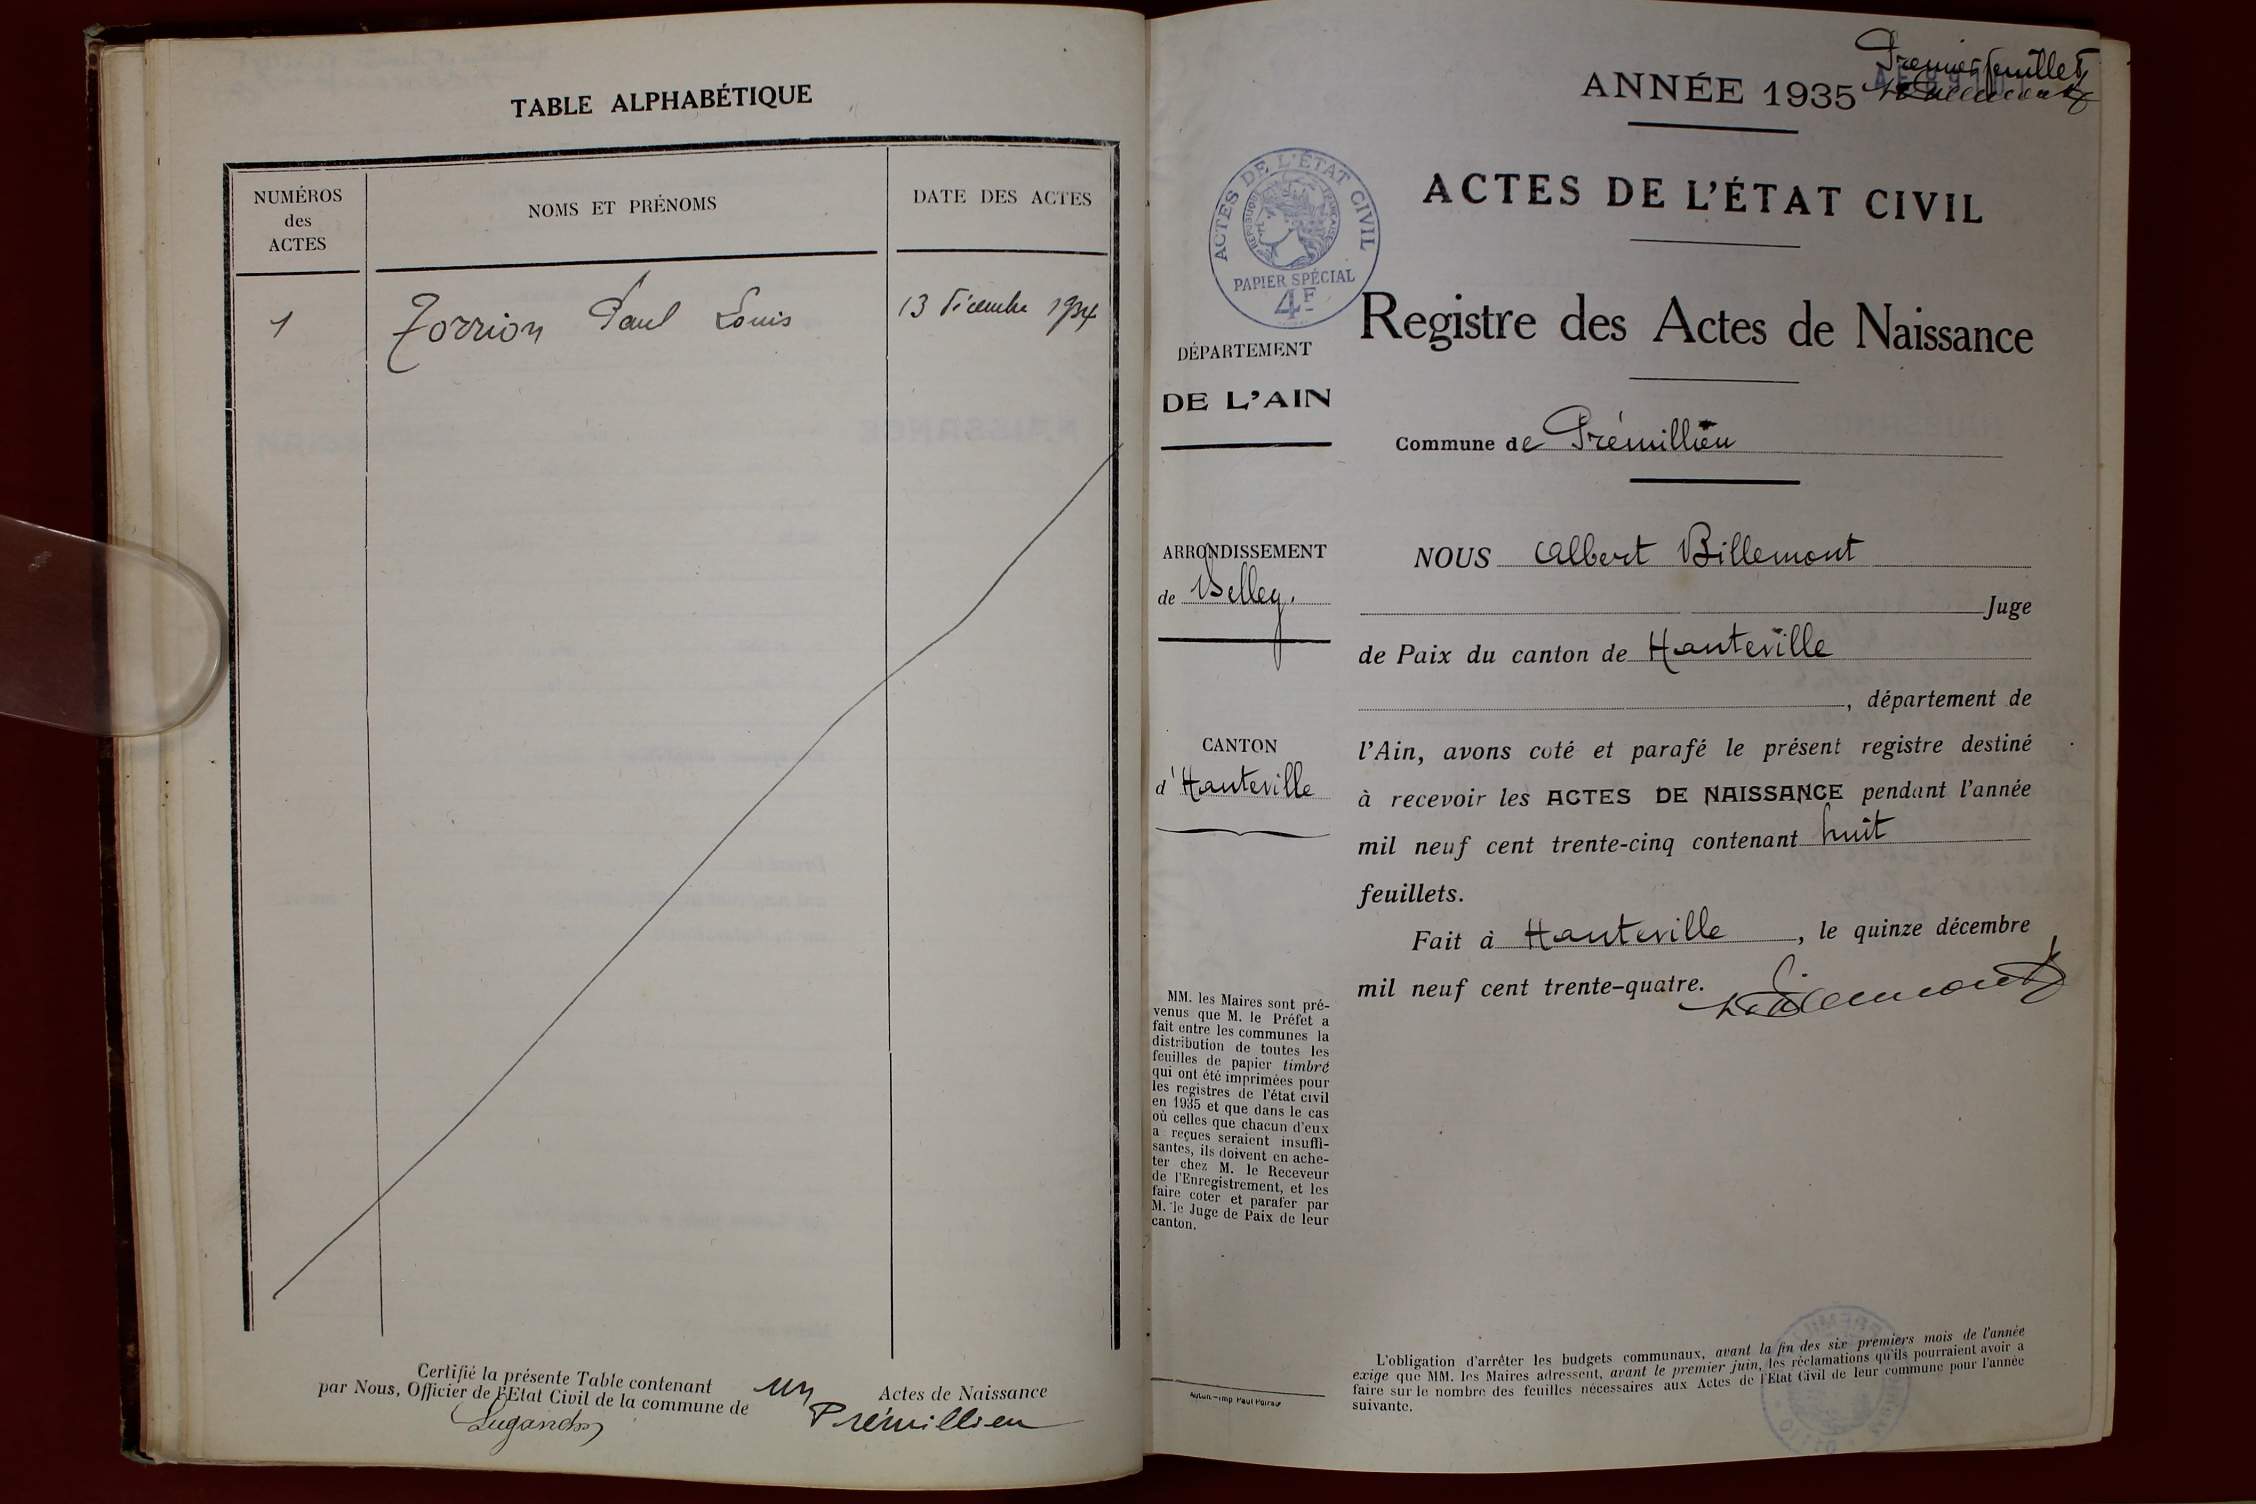 TABLE ALPHABÉTIQUE
NUMÉROS
des
ACTES
NOMS ET PRÉNOMS
DATE DES ACTES
1
Torrion Paul Louis
13 décembre 1934
Certifié la présente Table contenant un Actes de Naissance
par Nous, Officier de l'Etat Civil de la commune de Prémillieu
ANNÉE 1935
Premier feuillet
ACTES DE L'ÉTAT CIVIL
ACTES DE L'ÉTAT CIVIL
RÉPUBLIQUE FRANÇAISE
PAPIER SPÉCIAL
4F
Registre des Actes de Naissance
DÉPARTEMENT
DE L'AIN
Commune de Prémillieu
ARRONDISSEMENT
de Belley.
CANTON
d'Hauteville
NOUS Albert Billemont
Juge
de Paix du canton de Hauteville
, département de
l'Ain, avons coté et parafé le présent registre destiné
à recevoir les ACTES DE NAISSANCE pendant l'année
mil neuf cent trente-cinq contenant huit
feuillets.
Fait à Hauteville, le quinze décembre
mil neuf cent trente-quatre.
Billemont
MM. les Maires sont pré-
venus que M. le Préfet a
fait entre les communes la
distribution de toutes les
feuilles de papier timbré
qui ont été imprimées pour
les registres de l'état civil
en 1935 et que dans le cas
où celles que chacun d'eux
a reçues seraient insuffi-
santes, ils doivent en ache-
ter chez M. le Receveur
de l'Enregistrement, et les
faire coter et parafer par
M. le Juge de Paix de leur
canton.
L'obligation d'arrêter les budgets communaux, avant la fin des six premiers mois de l'année
exige que MM. les Maires adressent, avant le premier juin, les réclamations qu'ils pourraient avoir a
faire sur le nombre des feuilles nécessaires aux Actes de l'Etat Civil de leur commune pour l'année
suivante.